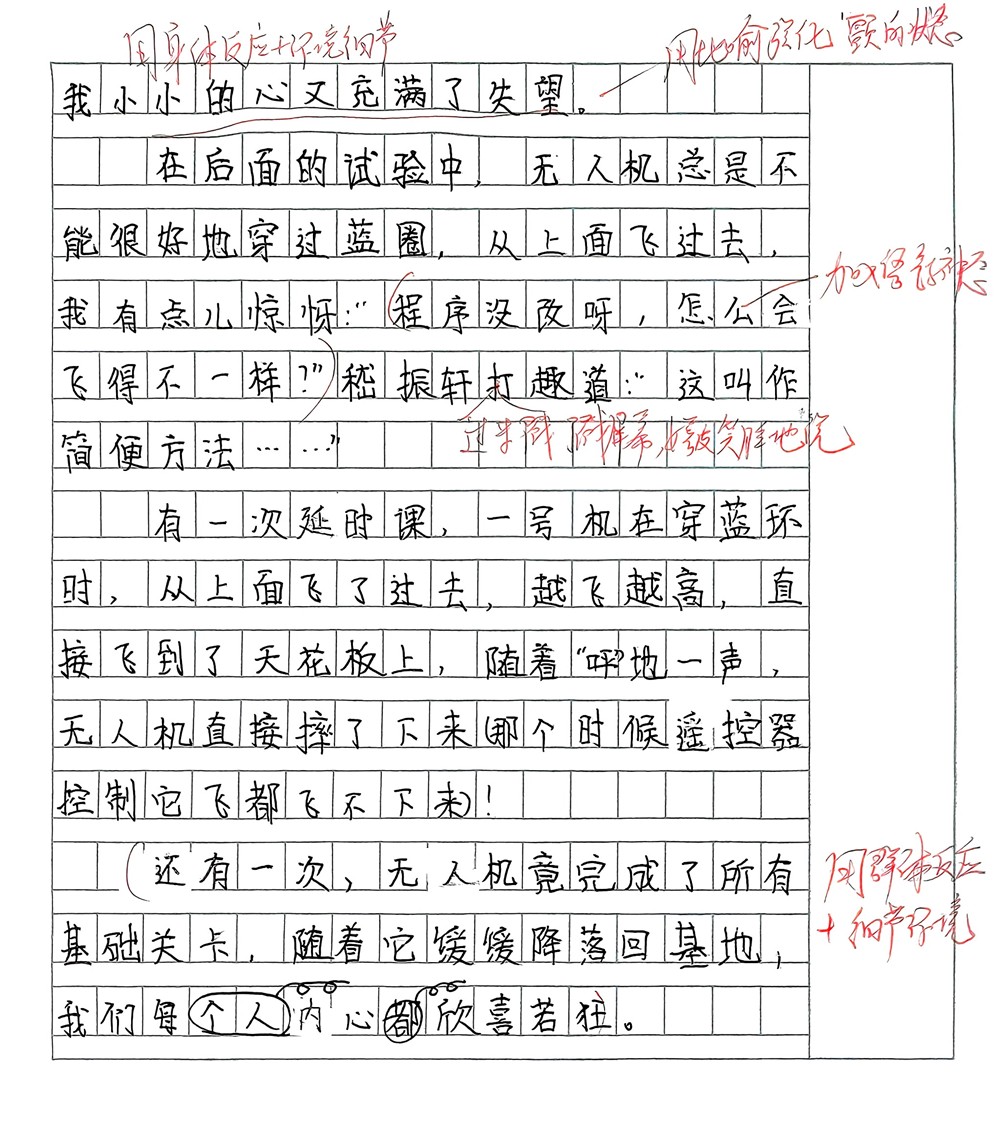 用身体反应+环境细节
用比喻强化的状态
我小小的心又充满了失望。
在后面的试验中，无人机总是不
能很好地穿过蓝圈，从上面飞过去，
加收怪
我有点儿惊讶：“程序没改呀，怎么会
飞得不一样？”嵇振轩打趣道：“这叫作
戳屏幕，笑脸地说
简便方法……”
有一次延时课，一号机在穿蓝环
时，从上面飞了过去，越飞越高，直
接飞到了天花板上，随着“呯”地一声，
无人机直接摔了下来（那个时候遥控器
控制它飞都飞不下来）！
还有一次，无人机竟完成了所有
用群体反应
+细节环境
基础关卡，随着它缓缓降落回基地，
我们每个人内心都欣喜若狂。